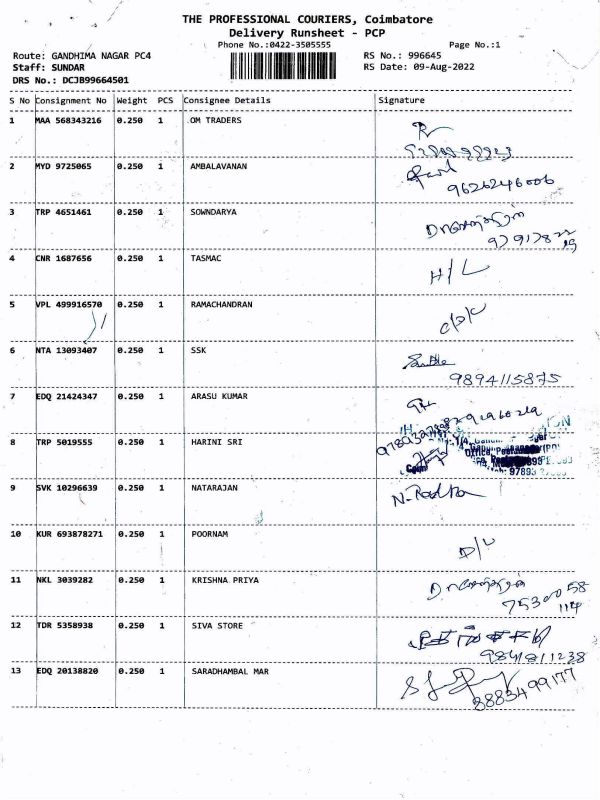 THE PROFESSIONAL COURIERS, Coimbatore
Delivery Runsheet - PCP
Phone No.:0422-3505555 Page No.:1
Route: GANDHIMA NAGAR PC4 RS No.: 996645
Staff: SUNDAR RS Date: 09-Aug-2022
DRS No.: DCJB99664501
S No Consignment No Weight PCS Consignee Details Signature
1 MAA 568343216 0.250 1 OM TRADERS
2 MYD 9725065 0.250 1 AMBALAVANAN
9626246006
3 TRP 4651461 0.250 1 SOWNDARYA
4 CNR 1687656 0.250 1 TASMAC
H/L
5 VPL 499916570 0.250 1 RAMACHANDRAN
6 NTA 13093407 0.250 1 SSK
9894115875
7 EDQ 21424347 0.250 1 ARASU KUMAR
8 TRP 5019555 0.250 1 HARINI SRI
9 SVK 10296639 0.250 1 NATARAJAN
10 KUR 693878271 0.250 1 POORNAM
D/L
11 NKL 3039282 0.250 1 KRISHNA PRIYA
7530058
114
12 TDR 5358938 0.250 1 SIVA STORE
9841811238
13 EDQ 20138820 0.250 1 SARADHAMBAL MAR
8883499177